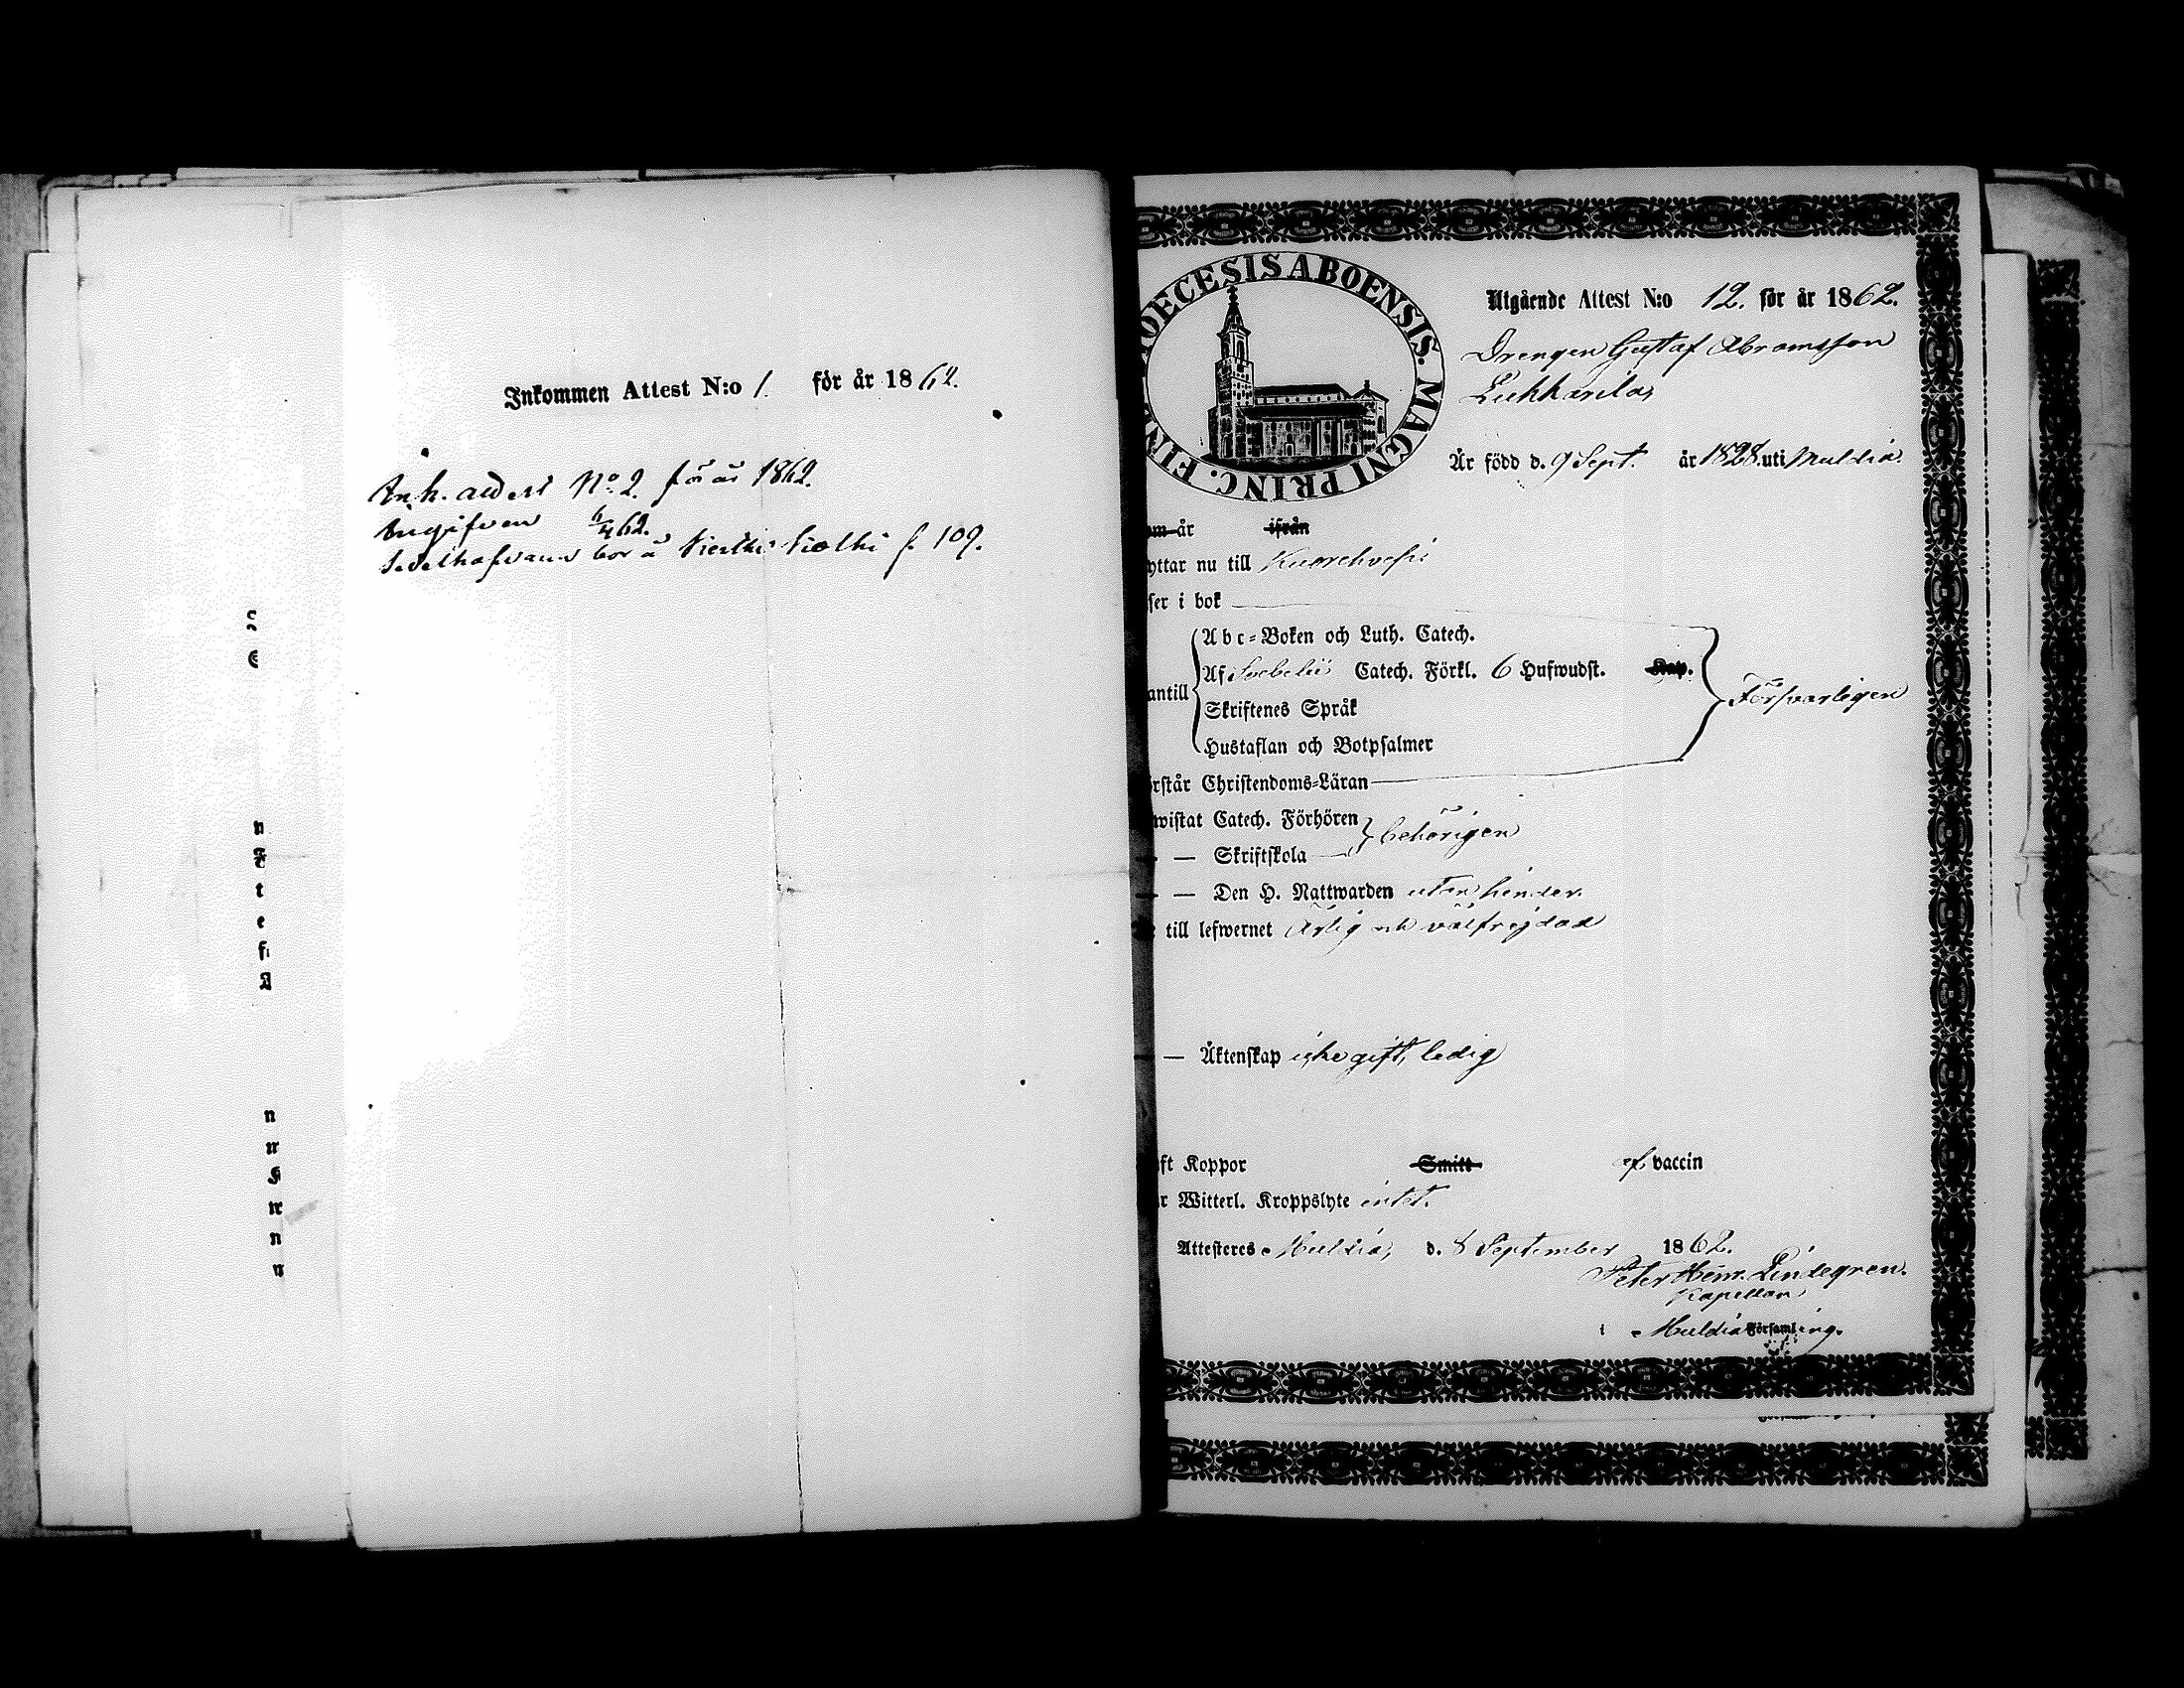 Inkommen Attest N:o 1. för år 1862.
Ink. attest No 2. för år 1862.
Ingifven 6/4 62.
bor å f. 109.
DIOECESIS ABOENSIS. MAGNI PRINC. FIN
Utgående Attest N:o 12. för år 1862.
Drengen Gustaf Abramsson
Är född d. 9 Sept. år 1828. uti Muldia.
om år ifrån
yttar nu till Kuorehvesi
ser i bok
Abc-Boken och Luth. Catech.
Af Svebelii Catech. Förkl. 6 Hufwudst. Kap.
antill
Skriftenes Språk
Försvarligen
Hustaflan och Botpsalmer
rstår Christendoms-Läran
wistat Catech. Förhören
behörigen
— Skriftskola
— Den H. Nattwarden utan hinder.
till lefwernet Ärlig och välfrejdad
— Äktenskap icke gift, ledig
ft Koppor Smitt af vaccin
r Witterl. Kroppslyte intet.
Attesteres Muldia, d. 8 September 1862.
Peter Henr. Lindegren.
Kapellan
i Muldia Församling.